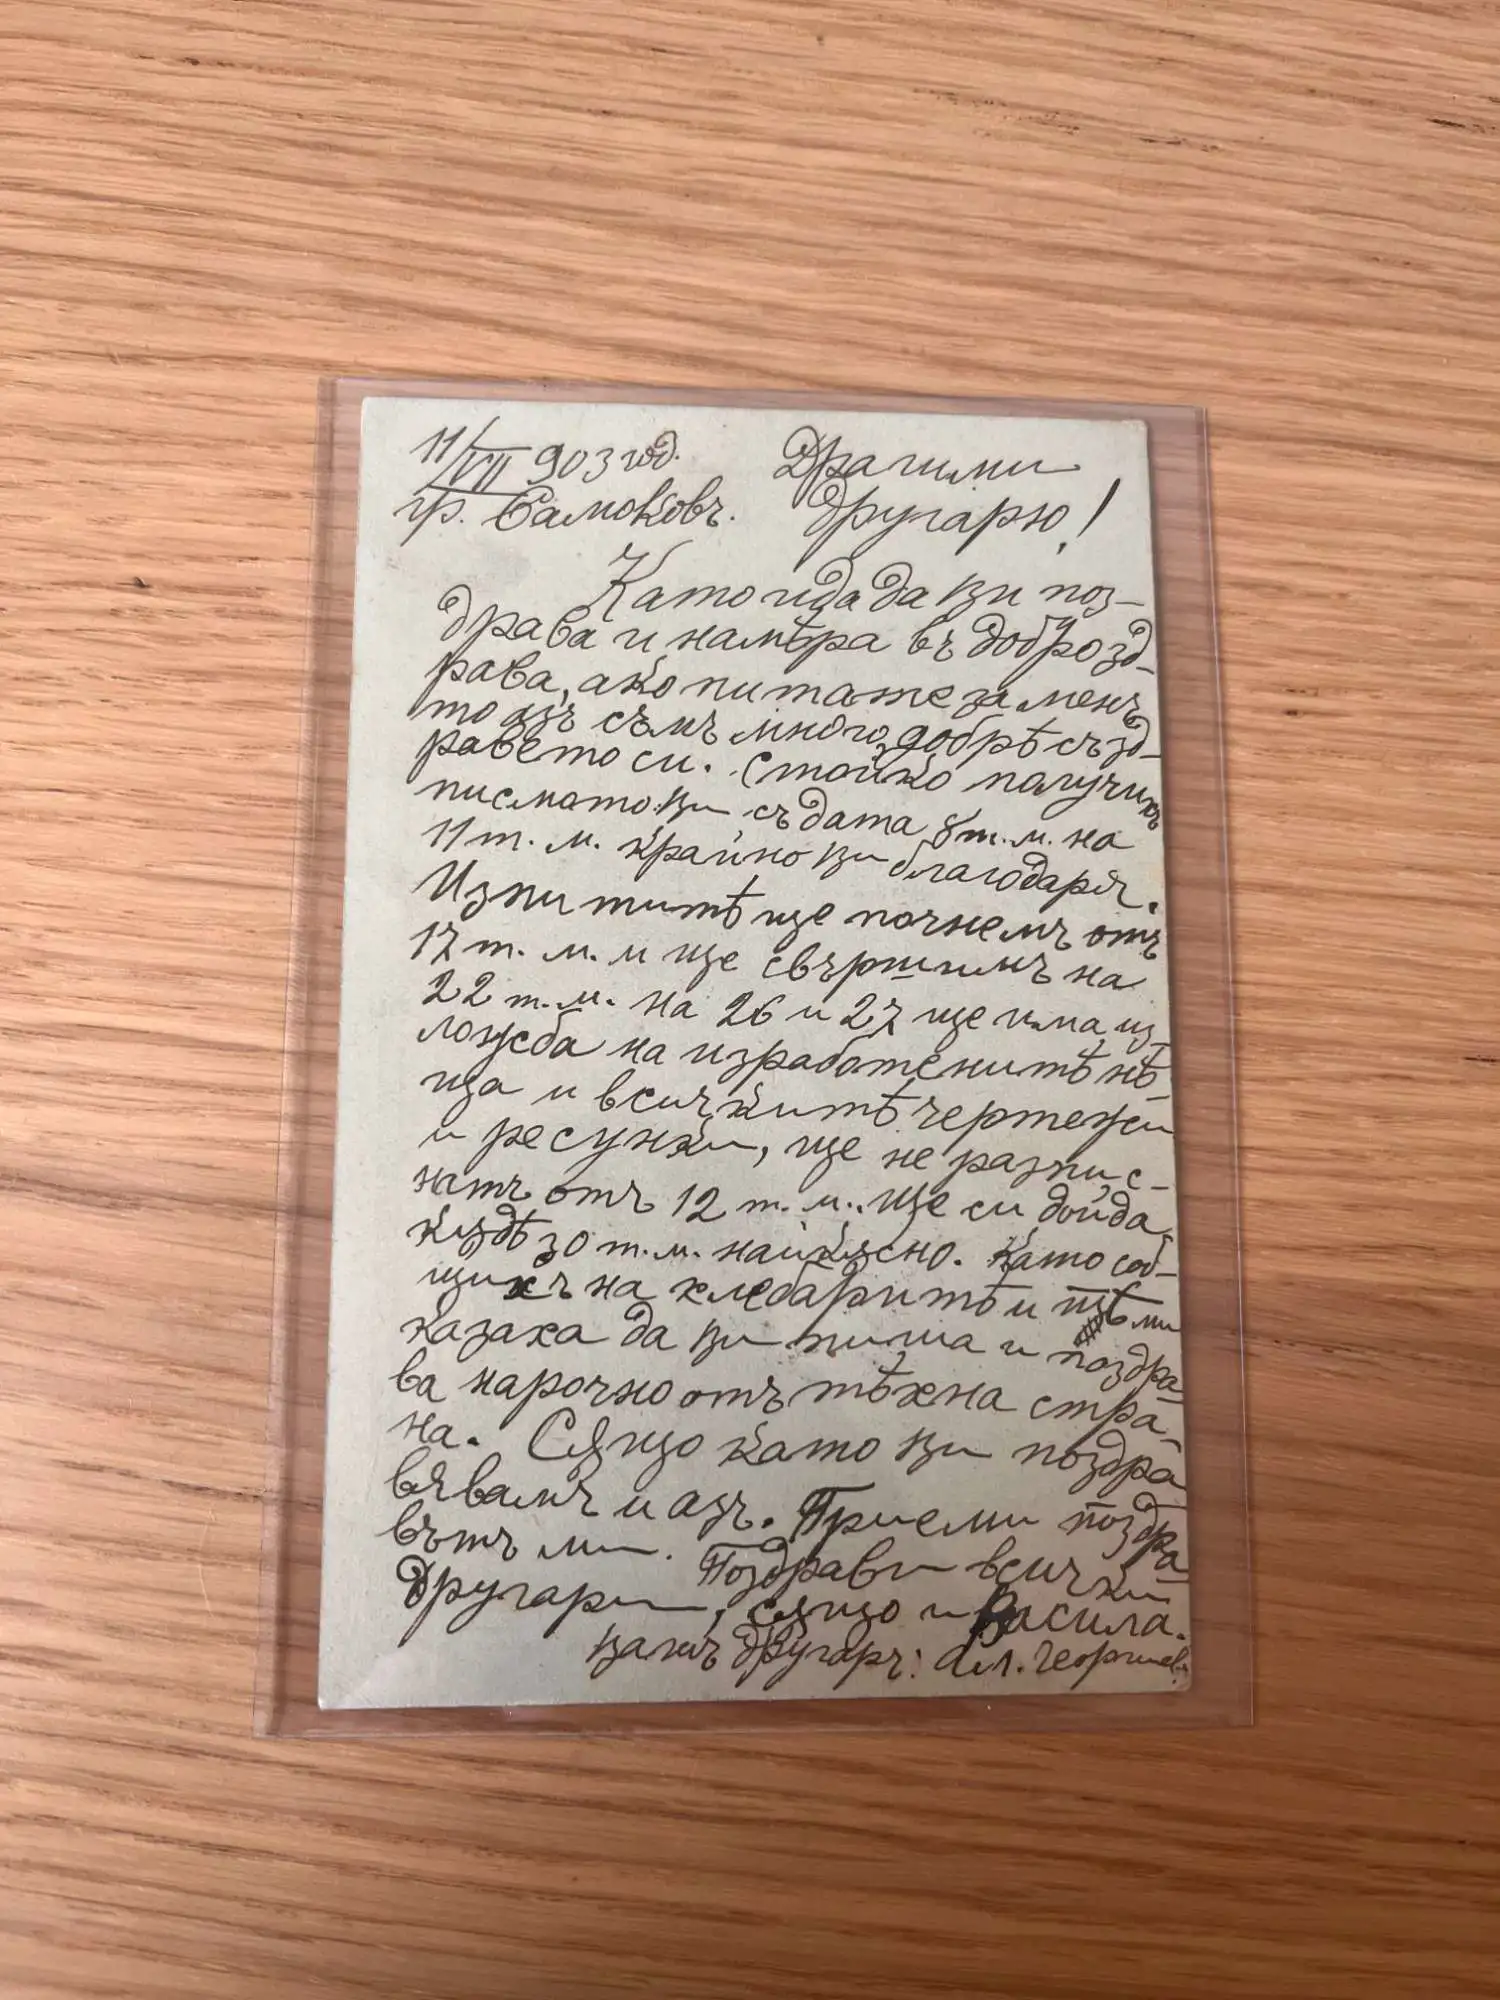 11/VII 903 год.
гр. Самоковъ.
Драгими
другарю!
Като ида да ви поз-
драва и намѣра въ добро зд-
рава, ако питате за менъ
то азъ съмъ много добрѣ съ зд-
равето си. Стойко получихъ
писмото ви съ дата 8 т. м. на
11 т. м. крайно ви благодаря.
Изпититѣ ще почнемъ отъ
17 т. м. и ще свършимъ на
22 т. м. на 26 и 27 ще има из-
ложба на изработенитѣ нѣ
ща и всичкитѣ чертежи
и ресунки, ще не разпис-
натъ отъ 12 т. м. Ще си дойда
къдѣ 30 т. м. найкѫсно. Като соб-
щихъ на хлебаритѣ и тѣ ми
казаха да ви пиша и поздра-
ва нарочно отъ тѣхна стра-
на. Сѫщо като ви поздра
вявамъ и азъ. Приеми поздра
вътъ ми. Поздрави всички
другари, сѫщо и Васила.
вашъ другаръ: Ал. Георгиевъ